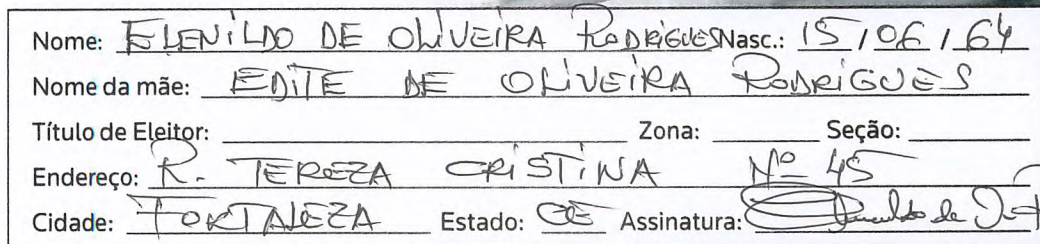 Nome: ELENILDO DE OLIVEIRA RODRIGUES Nasc.: 15 / 06 / 64
Nome da mãe: EDITE DE OLIVEIRA RODRIGUES
Título de Eleitor: Zona: Seção:
Endereço: R. TEREZA CRISTINA Nº 45
Cidade: FORTALEZA Estado: CE Assinatura: